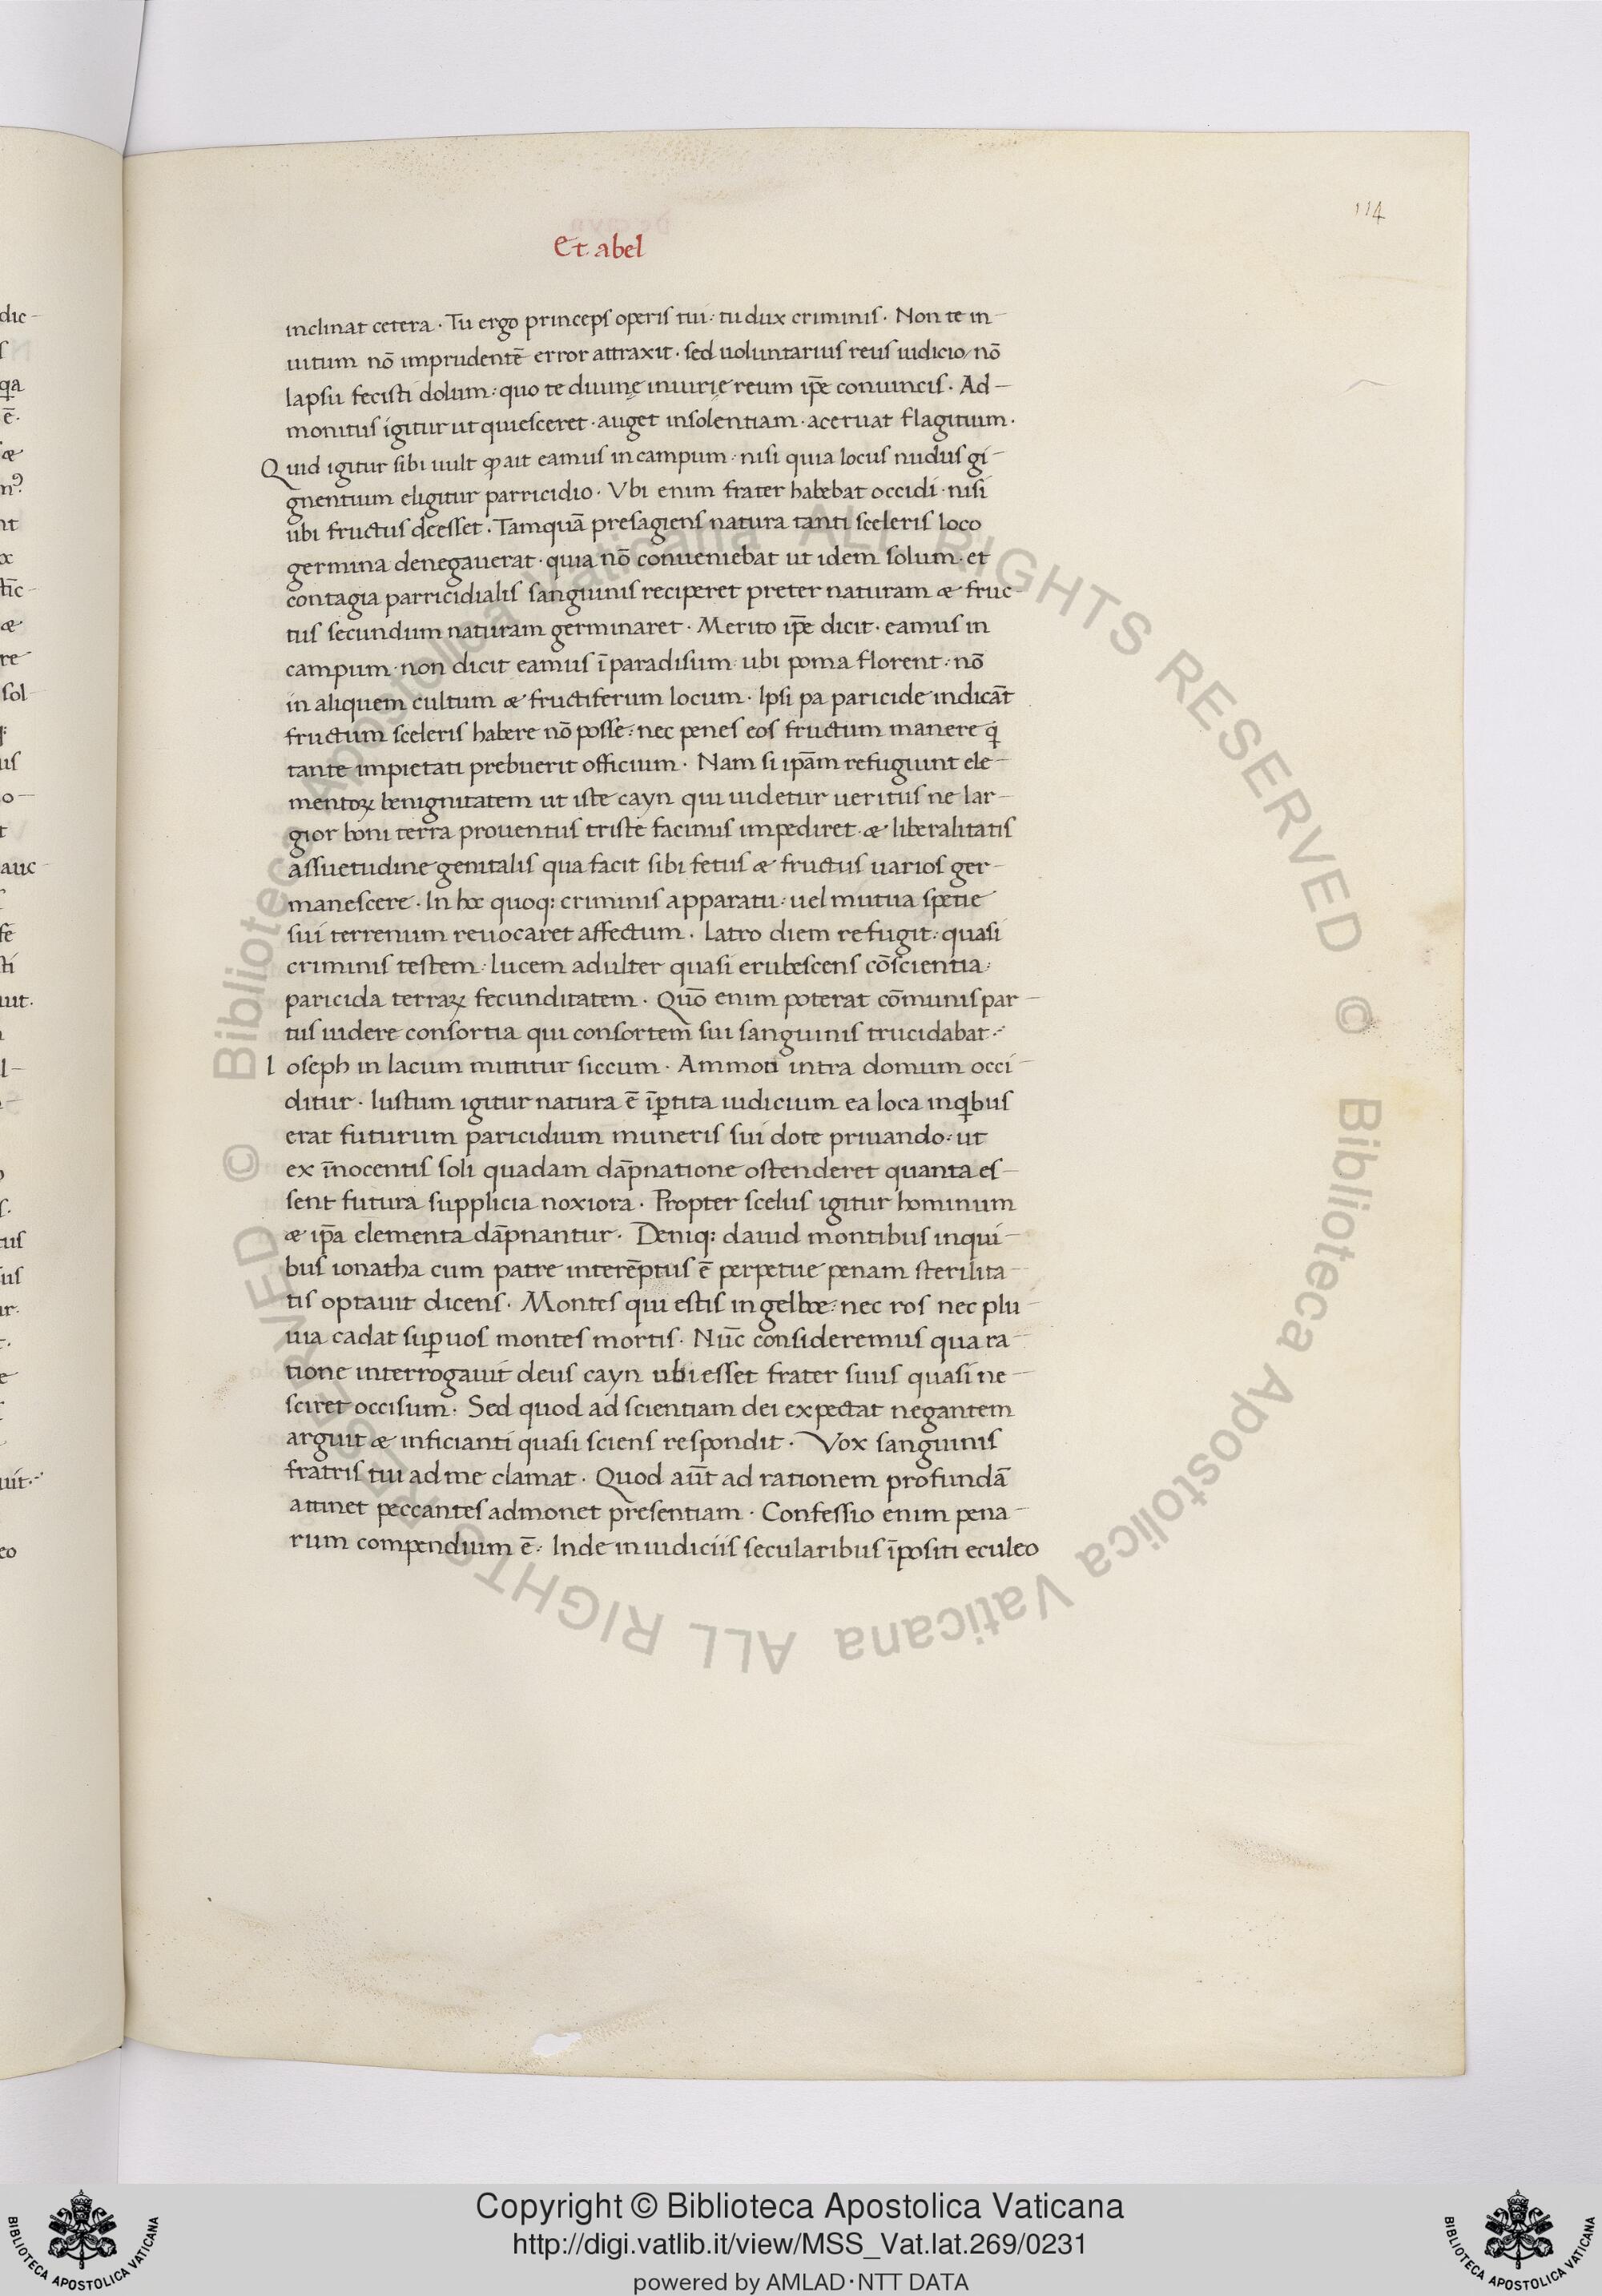 114
Et abel
inclinat cetera · Tu ergo princeps operis tui : tu dux criminis · Non te in-
uitum nō imprudentē error attraxit · sed uoluntarius reus iudicio / nō
lapsu fecisti dolum : quo te diuinę iniurię reum ip̄e conuincis · Ad-
monitus igitur ut quiesceret · auget insolentiam · aceruat flagitium ·
Quid igitur sibi uult ꝙ ait eamus in campum : nisi quia locus nudus gi-
gnentium eligitur parricidio · Vbi enim frater habebat occidi · nisi
ubi fructus deesset · Tamquā presagiens natura tanti sceleris loco
germina denegauerat · quia nō conueniebat ut idem solum · et
contagia parricidialis sanguinis reciperet preter naturam æ fruc-
tus secundum naturam germinaret · Merito ip̄e dicit · eamus in
campum · non dicit eamus ī paradisum : ubi poma florent : nō
in aliquem cultum æ fructiferum locum · Ipsi pa paricide indicāt
fructum sceleris habere nō posse : nec penes eos fructum manere q̇
tante impietati prebuerit officium · Nam si ipām refugiunt ele-
mentoꝝ benignitatem ut iste cayn qui uidetur ueritus ne lar-
gior boni terra prouentus triste facinus impediret · æ liberalitatis
assuetudine genitalis qua facit sibi fetus æ fructus uarios ger-
manescere · In hoc quoq: criminis apparatu : uel mutua spetie
sui terrenum reuocaret affectum · Latro diem refugit : quasi
criminis testem : lucem adulter quasi erubescens cōscientia :
paricida terraꝝ fecunditatem · Quō enim poterat cōmunis par-
tus uidere consortia qui consortem sui sanguinis trucidabat :·
Ioseph in lacum mittitur siccum · Ammon intra domum occi-
ditur · Iustum igitur natura ē īꝑtita iudicium ea loca in qibus
erat futurum paricidium muneris sui dote priuando : ut
ex īnocentis soli quadam dāpnatione ostenderet quanta es-
sent futura supplicia noxiora · Propter scelus igitur hominum
æ ip̄a elementa dāpnantur · Deniq: dauid montibus in qui-
bus ionatha cum patre interēptus ē perpetue penam sterilita-
tis optauit dicens · Montes qui estis in gelboe : nec ros nec plu-
uia cadat suꝑ uos montes mortis · Nūc consideremus qua ra-
tione interrogauit deus cayn ubi esset frater suus quasi ne-
sciret occisum · Sed quod ad scientiam dei expectat negantem
arguit æ inficianti quasi sciens respondit · Vox sanguinis
fratris tui ad me clamat · Quod aūt ad rationem profundā
attinet peccantes admonet presentiam · Confessio enim pena-
rum compendium ē : Inde in iudiciis secularibus īpositi eculeo
© Biblioteca Apostolica Vaticana ALL RIGHTS RESERVED © Biblioteca Apostolica Vaticana ALL RIGHTS RESERVED
Copyright © Biblioteca Apostolica Vaticana
http://digi.vatlib.it/view/MSS_Vat.lat.269/0231
powered by AMLAD·NTT DATA
BIBLIOTECA APOSTOLICA VATICANA
BIBLIOTECA APOSTOLICA VATICANA